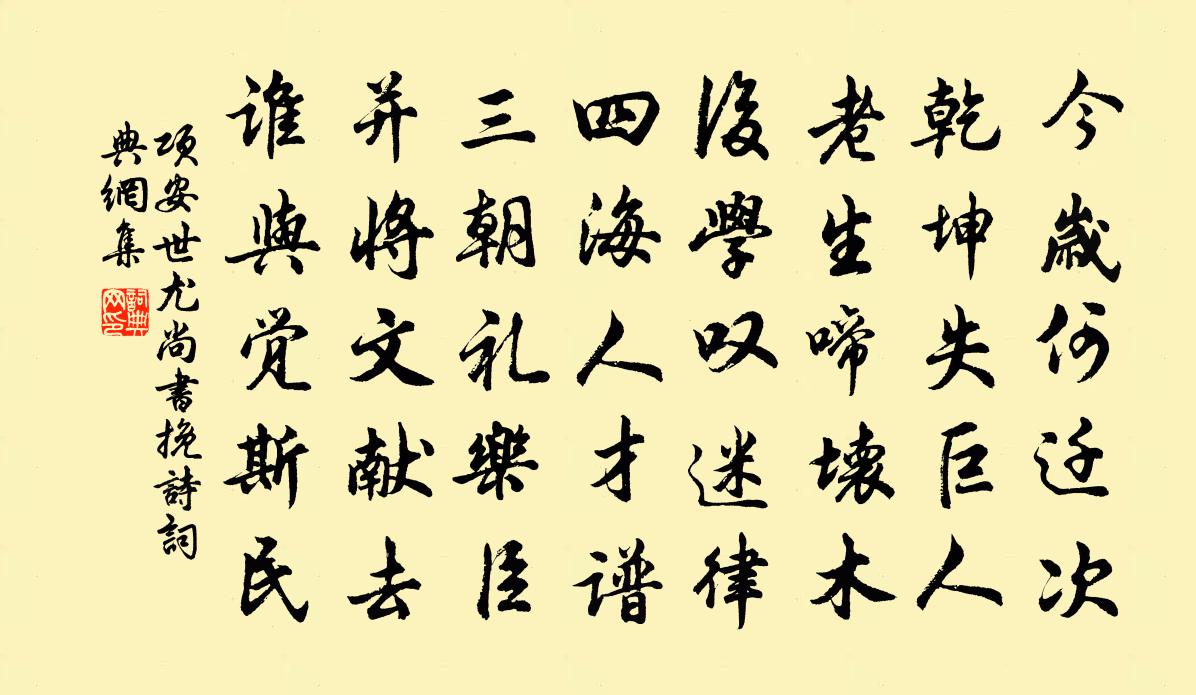 今歲何迁次
乾坤失巨人
老生啼壊木
後學叹迷律
四海人才谱
三朝礼樂臣
并将文献去
谁與觉斯民
项安世尤尚書挽詩詞
典網集
詞典
网印